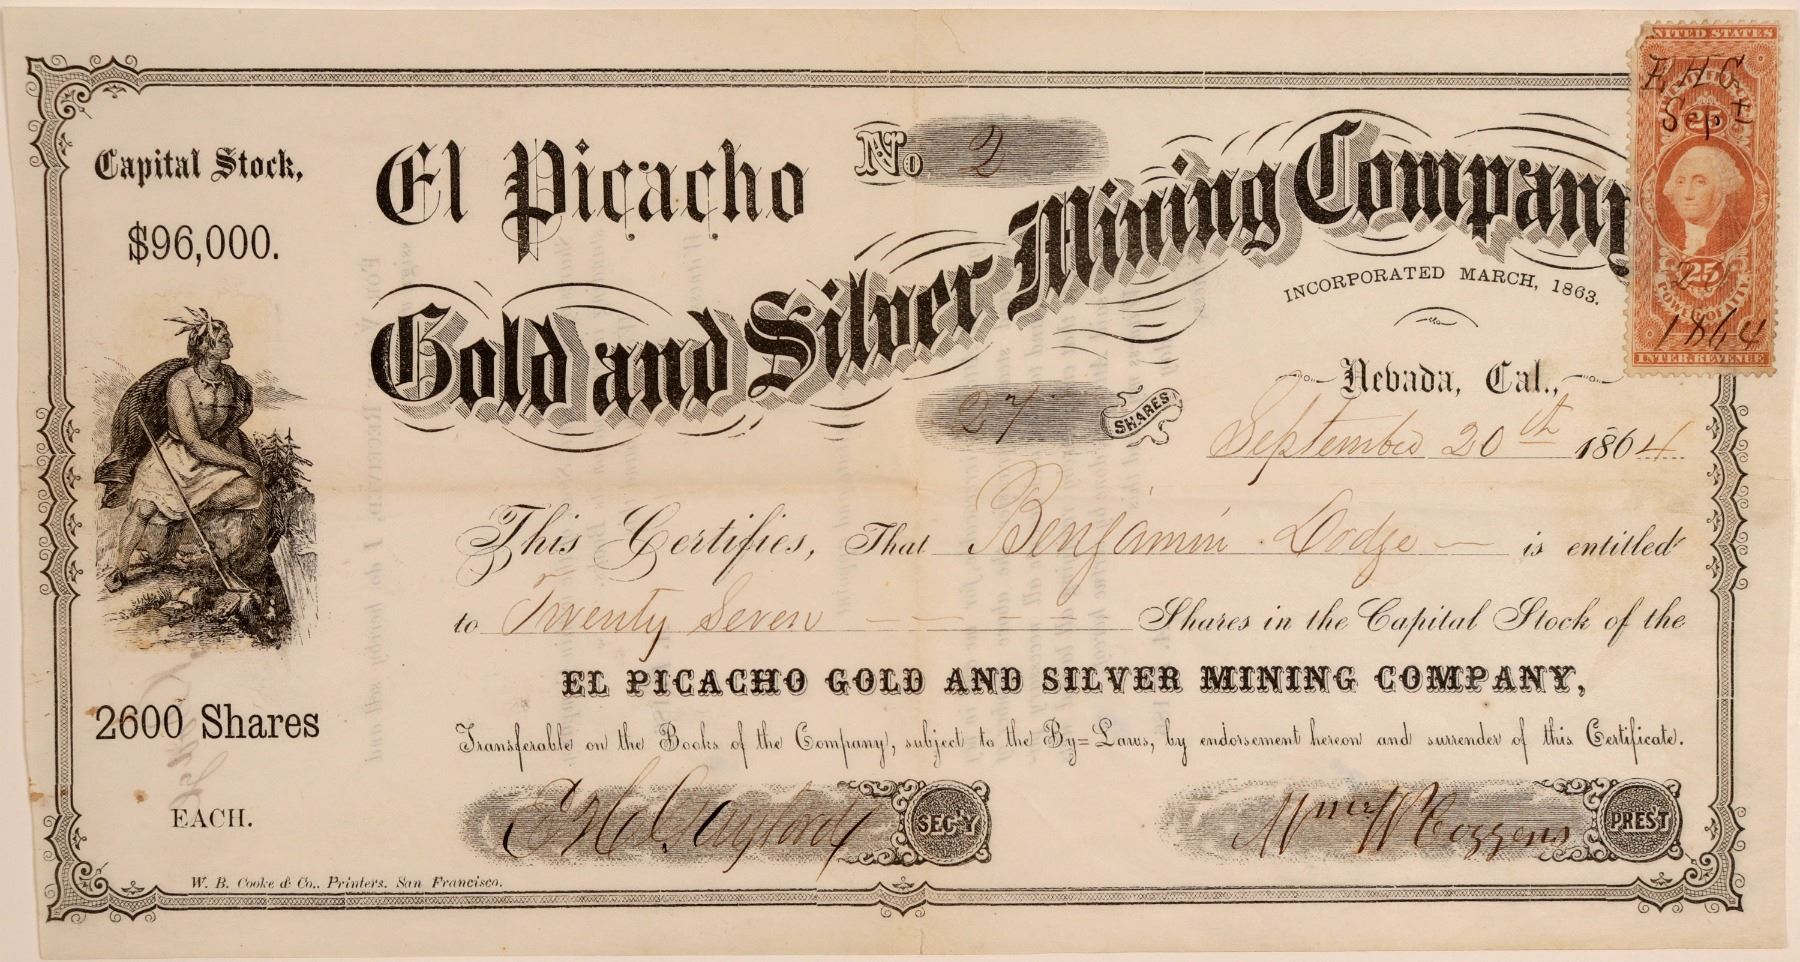 Capital Stock,
$96,000.
2600 Shares
EACH.
El Picacho
No 2
Gold and Silver Mining Company
INCORPORATED MARCH, 1863.
Nevada, Cal.,
27 SHARES
September 20th 1864
This Certifies, That Benjamin Dodge is entitled
to Twenty Seven Shares in the Capital Stock of the
EL PICACHO GOLD AND SILVER MINING COMPANY,
Transferable on the Books of the Company, subject to the By=Laws, by endorsement hereon and surrender of this Certificate.
E H Gaylord SEC'Y
Wm W Cozzens PRES'T
W. B. Cooke & Co., Printers. San Francisco.
UNITED STATES
E H G
Sept
25
1864
INTER. REVENUE